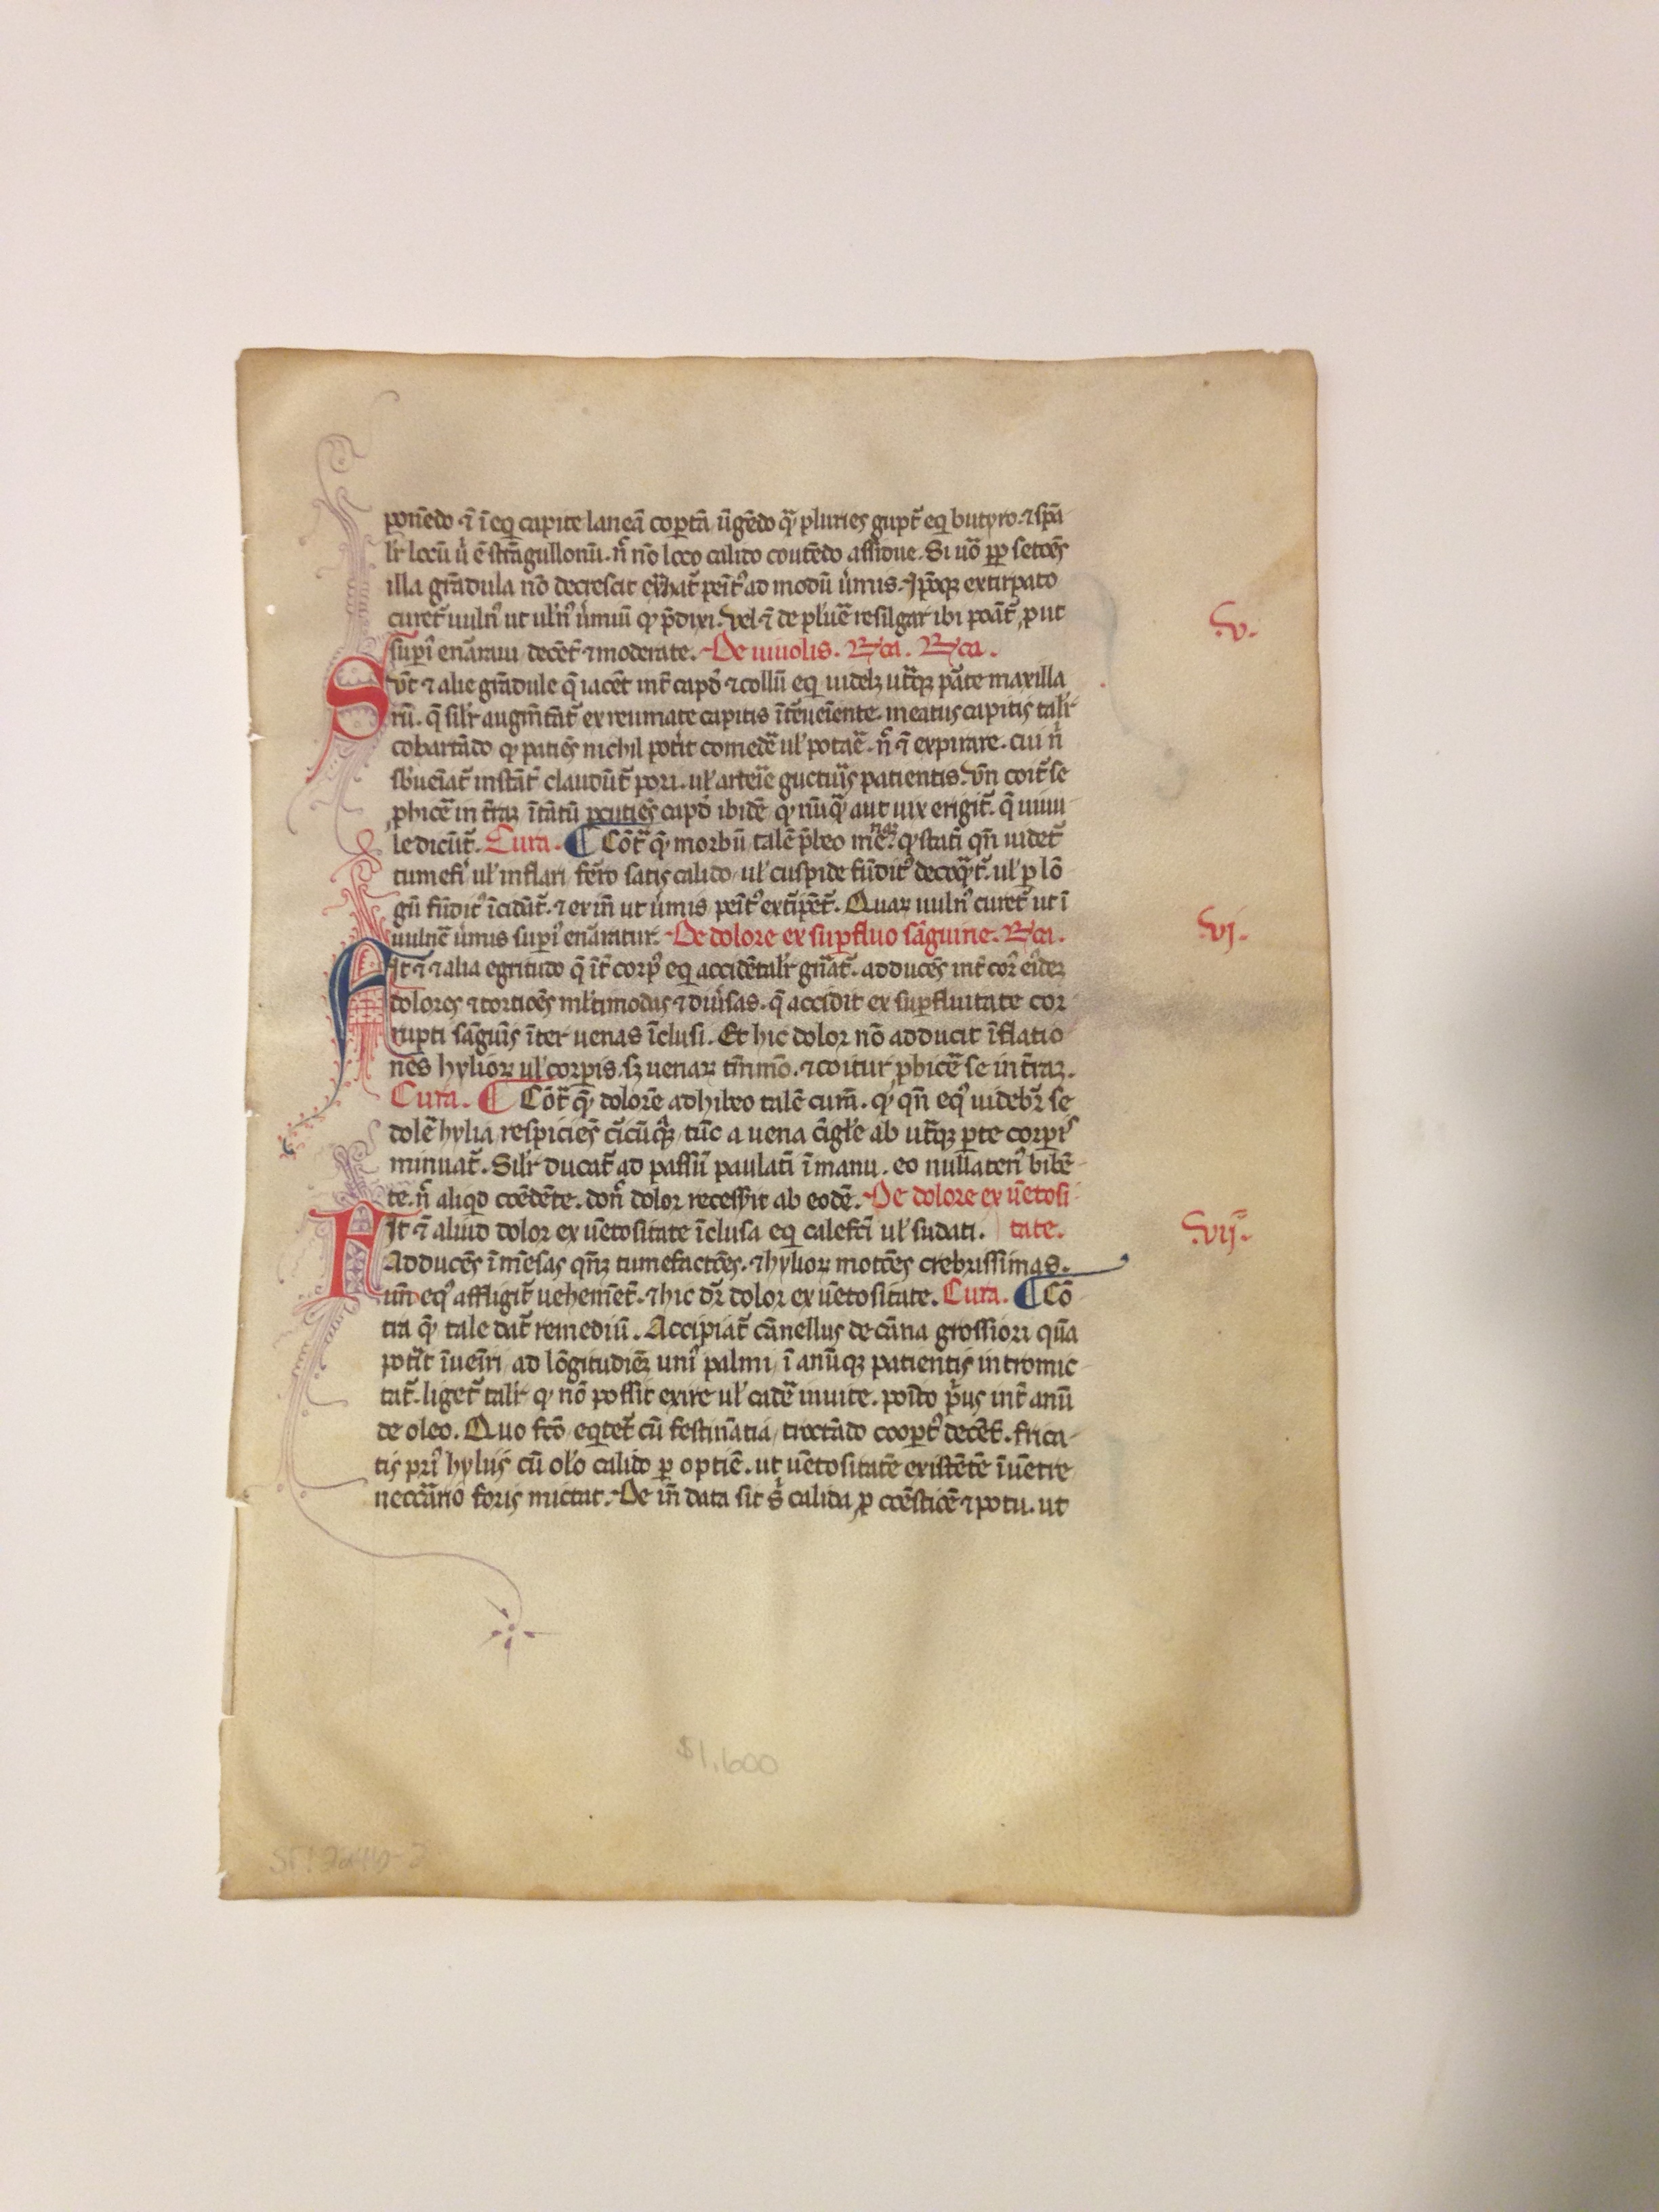 ponēdo ⁊ ī eq̄ capite laneā coꝑtā ūgēdo q̄ pluries gupt̄ eq̄ butyro ⁊ spā
lr̄ locū ē strāgullonū. nō loco calido assidue. Si uō ꝓpt
illa grādula nō decrescat ad modū u̇mis. extirpato
curet̄ uuln̄ ut uln̄ u̇miū qꝫ p̄dixi. Vel ⁊ de resilgar ibi put
suꝑi enāraui decēt̄ ⁊ moderate. De uiuolis. Rͨa. Rͨa.
Sūt ⁊ alie grādule q̄ iacēt int̄ capď ⁊ collū eq̄ uidelꝫ ut̄qꝫ ꝑāte maxilla
rū. q̄ silr̄ augm̄tāt̄ ex reumate capitis īt̄ueiēnte. meatus capitis talr̄
cobartādo qꝫ patiēs nichil pot̄it comedē ul' potaē. n̄ ⁊ expirare. cui n̄
sb'ueiāt̄ instāt̄ claudūt̄ pori. ul' arteīe guctuīs patientis. Vn̄ coit̄ se
ꝓhicē in t̄rāꝫ ītātū ꝑcutiēs capď ibidē qꝫ nūq̄ aut uix erigit̄. q̄ uiuu
le dicūt̄. Cura. ¶ Cōt̄ q̄ morbū talē p̄beo qꝫ statī qn̄ uidet̄
tumefi' ul' inflari fērro satis calido ul' cuspide fūdit' decoq̄t̄. ul' ꝑ lō
gū fūdit' īcidūt̄. ⁊ ex īn ut u̇mis peīt' extiꝑēt̄. Quaꝝ uuln' curēt̄ ut ī
uulnē u̇mis suꝑi' enāratur. De dolore ex suꝑfluo sāguine. Rͨa.
Fit ⁊ ⁊ alia egritudo q̄ īt̄ corp' eq̄ accidētalr̄ gn̄at̄. adducēs int̄ coř eidēꝫ
dolores ⁊ tortiōēs ml'timodas ⁊ diu̇sas. q̄ accidit ex suꝑfluitate cor
rupti sāguīs īter uenas īclusi. Et hic dolor nō adducit īflatio
nes hylioꝝ ul' corꝑis. sꝫ uenaꝝ tm̄mō. ⁊ coitur ꝓhicē se in t̄rāꝫ.
Cura. ¶ Cōt̄ q̄ dolorē adhibeo talē curā. qꝫ qn̄ eq' uidebr̄ se
dolē hylia respiciēs cīcūq̄ꝫ tūc a uena cīgl'e ab ut̄qꝫ ꝑte corpīs
minuat̄. Silr̄ ducat̄ ad passū paulatī ī manu. eo nullaten' bibē
te. n̄ aliqd coēdēte. don̄ dolor recesserit ab eodē. De dolore ex uētosi
Fit ⁊ aliud dolor ex uētositate īclusa eq̄ calefcī ul' sudati. tate.
Adducēs īmēsas qn̄qꝫ tumefactōēs. ⁊ hylioꝝ motōēs crebrissimas.
un̄ eq' affligit̄ uehem̄ēt̄. ⁊ hic dr̄ dolor ex uētositate. Cura. ¶ Cō
tra q̄ tale dat̄ remediū. Accipiat̄ cānellus de cāna grossiori qūa
pot̄it īueīri ad lōgitudieꝫ uni' palmi ī anūqꝫ patientis intromic
tat̄. liget̄ talr̄ qꝫ nō possit exire ul' cadē inuite. poīto p̄us int̄ anū
de oleo. Quo fcō eqitet̄ cū festinātia troctādo cooꝑt' decēt̄. frica
tis pri' hyliis cū ol'o calido ꝑ optīē. ut uētositatē existētē ī uētre
neccārio foris mictat. De īn data sit s' calida ꝓ coēstiōē ⁊ potu. ut
.v.
.vj.
.vij.
$1,600